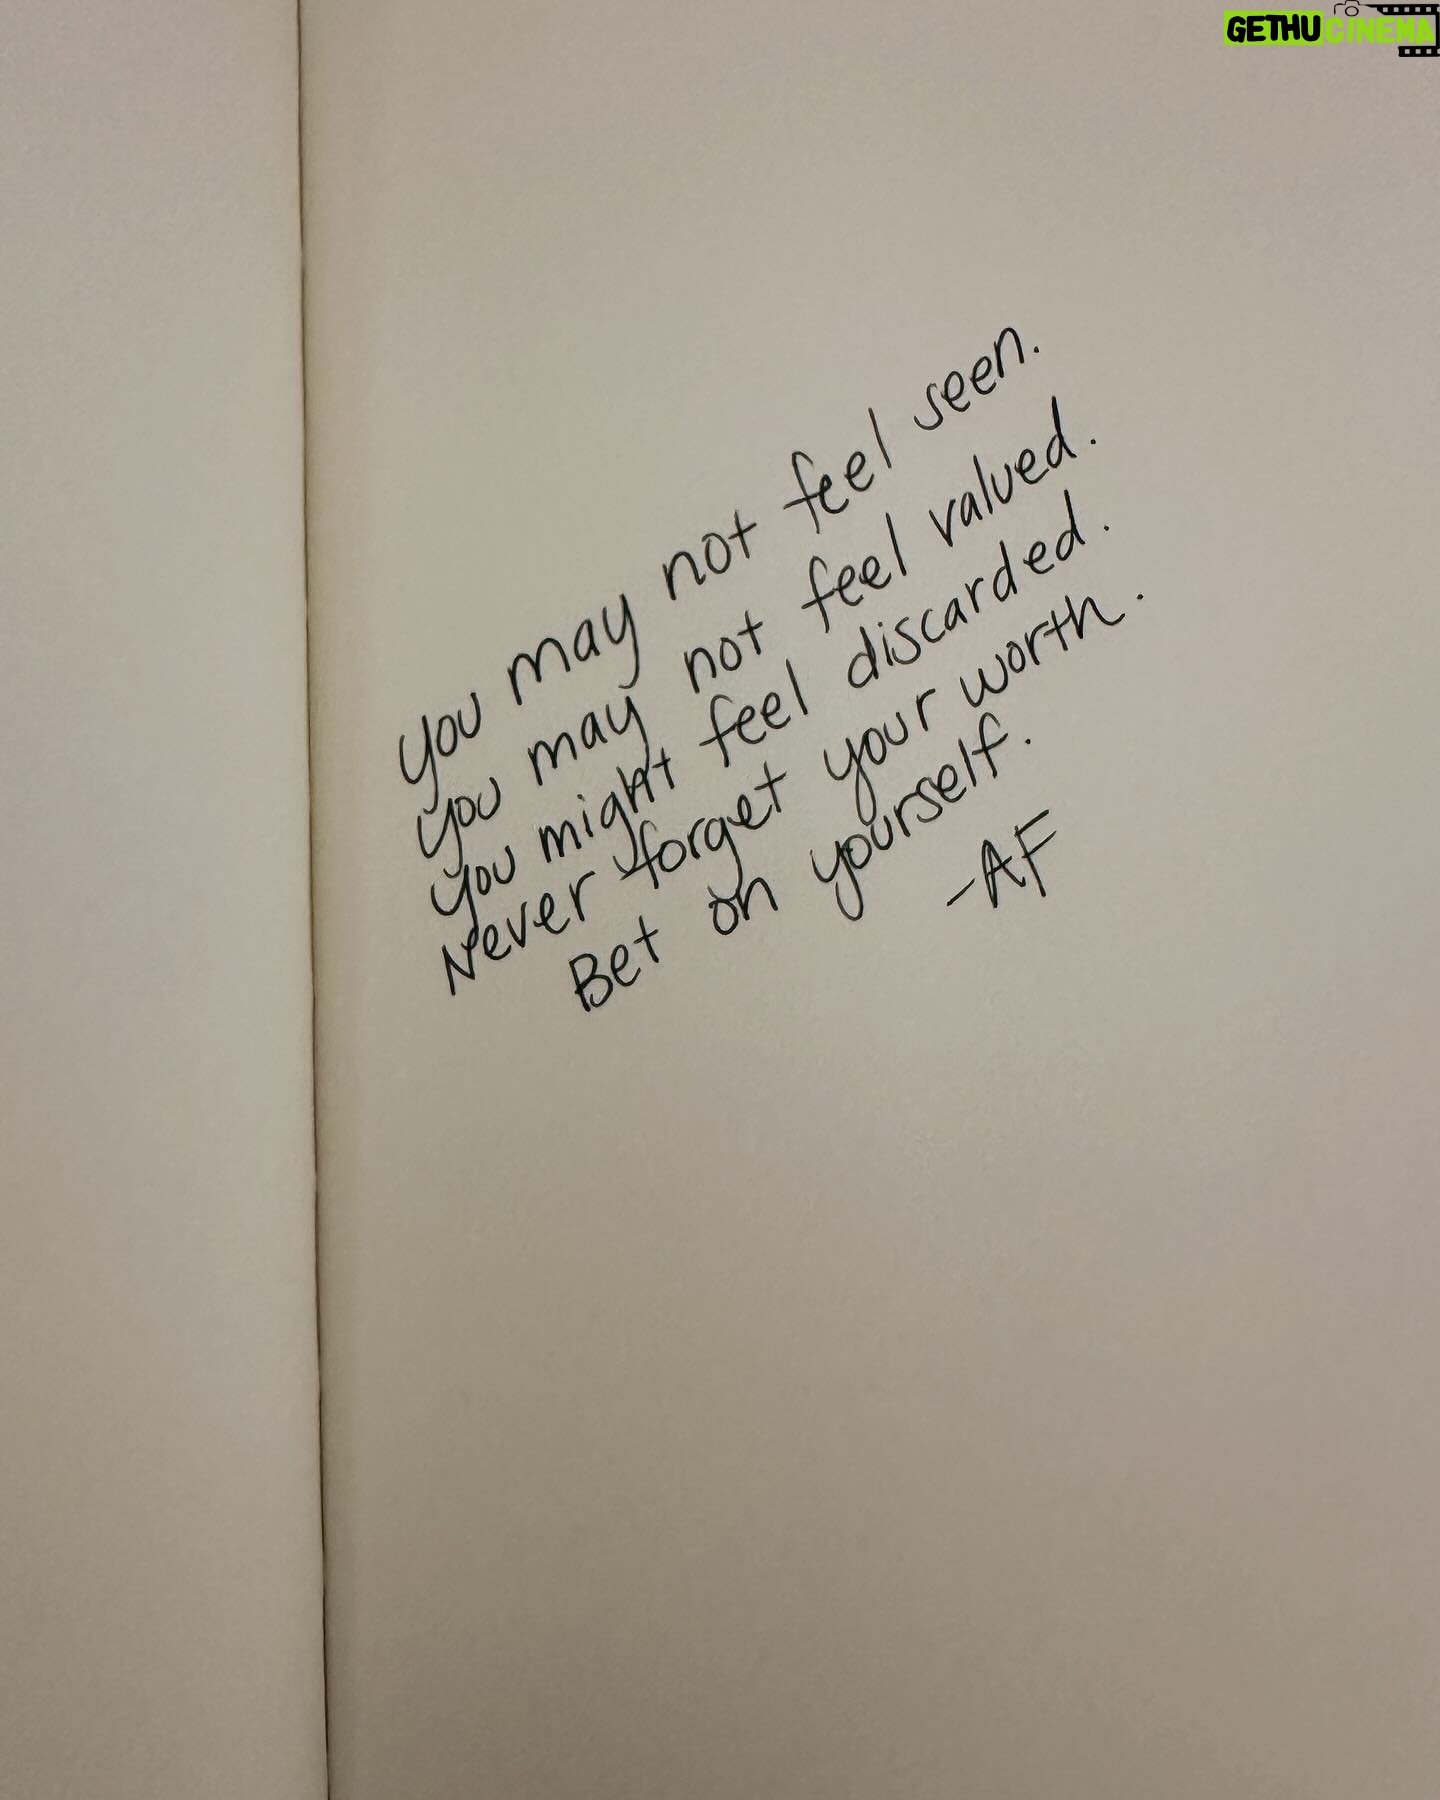 GETHUCINEMA
you may not feel seen.
you may not feel valued.
you might feel discarded.
Never forget your worth.
Bet on yourself.
-AF